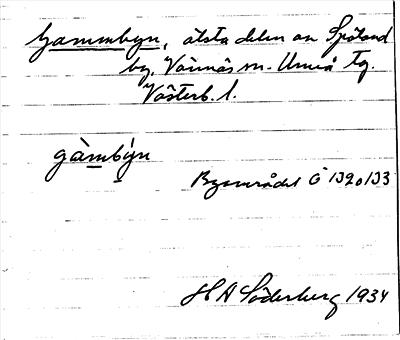 Gammbyn, älsta delen av Spöland
by, Vännäs sn. Umeå tg.
Västerb. l.
gàmbýn
Byområdet Ö 132o133
H A Söderberg 1934